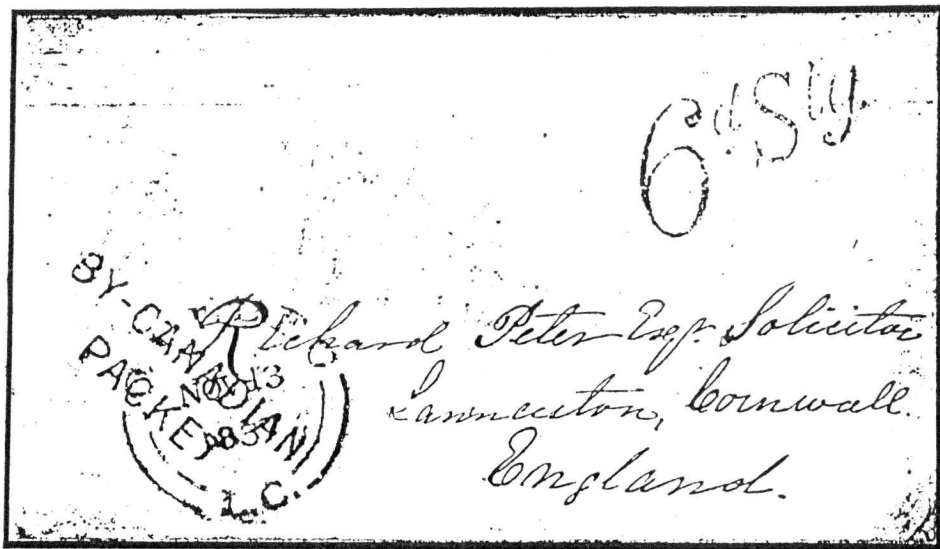 6d Stg.
BY-CANADIAN
PACKET
NOV 13
185
L.C.
Richard Peter Esqr. Solicitor
Lawnceston, Cornwall.
England.